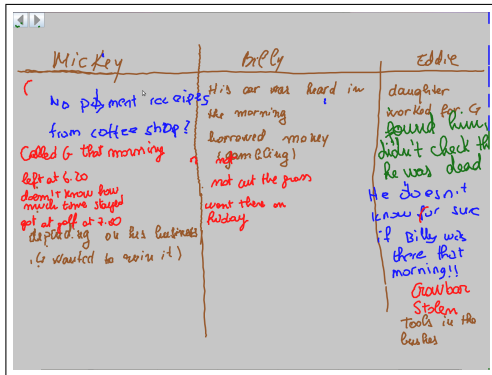 Mickey
No payment receipes
from coffee shop?
Called G that mourning
left at 6.20
doesn't know how
much time stayed
got at golf at 7.00
depending on his business
(G wanted to ruin it)
Billy
His car was heard in
the morning
borrowed money
(gambling)
not cut the grass
went there on
friday
Eddie
daughter
worked for G
found him,
didn't check th
he was dead
He doesn't
know for sure
if Billy was
there that
morning!!
Crowbar
Stolen
Tools in the
bushes